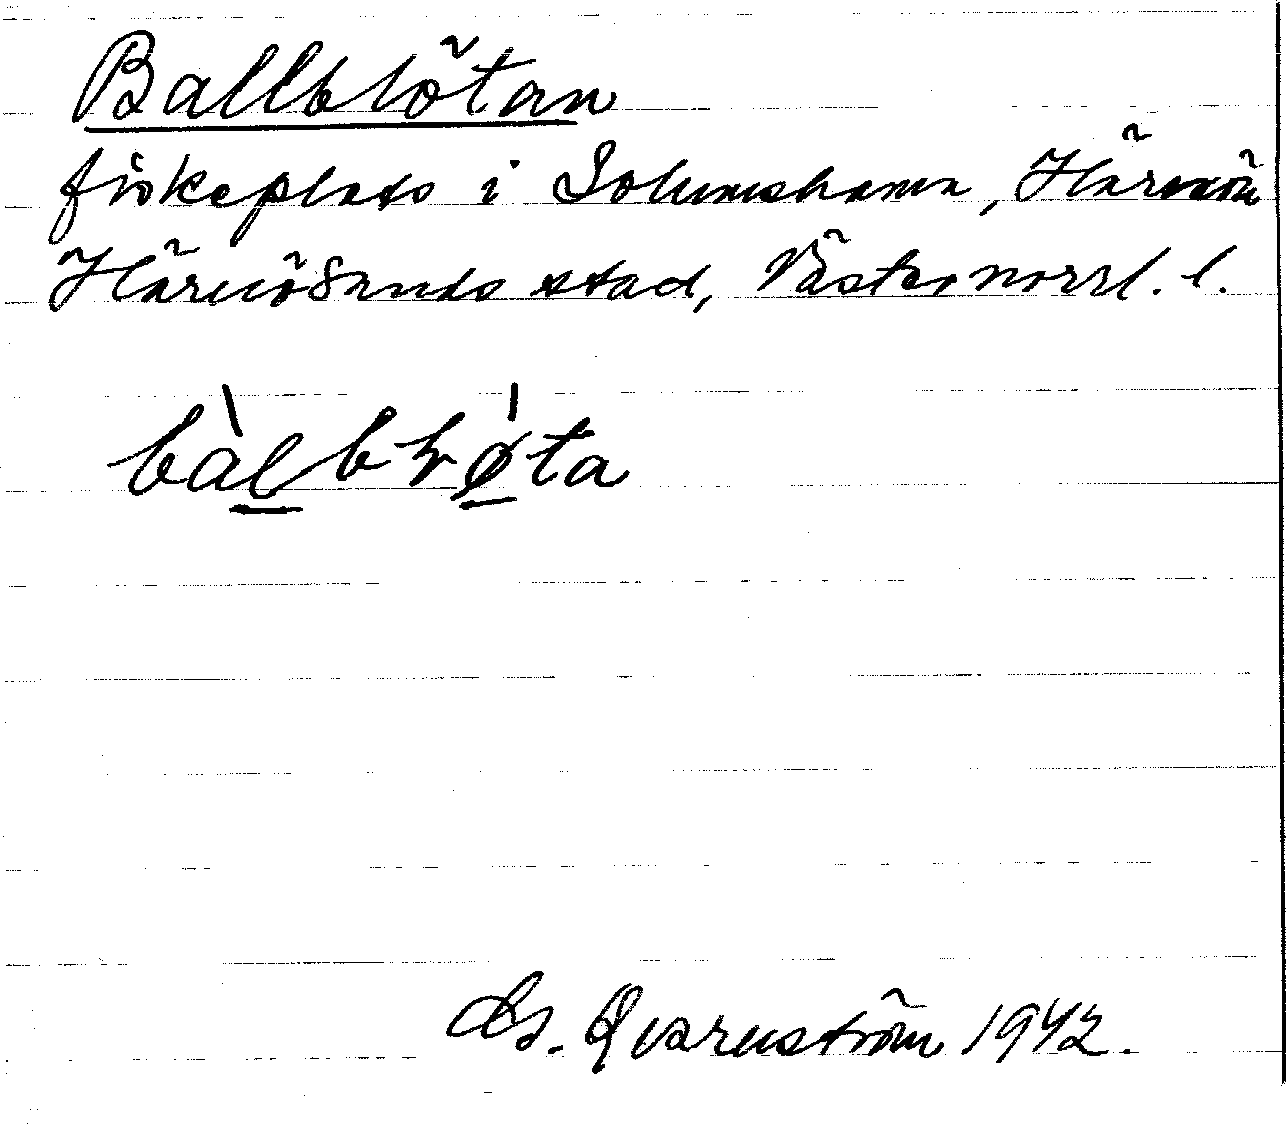 Ballblötan
fiskeplats i Solumshamn, Härnön
Härnösands stad, Västernorrl. l.
bàlbløta
Qvarnström 1942.